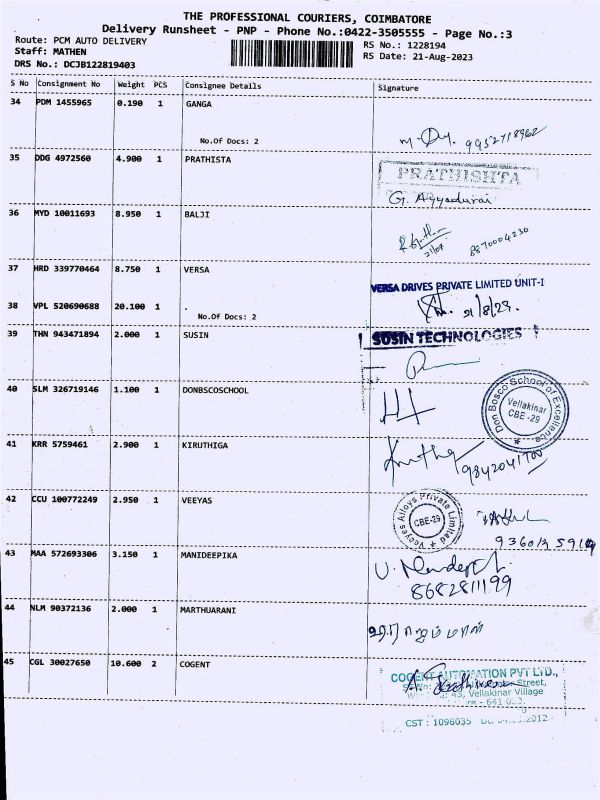 THE PROFESSIONAL COURIERS, COIMBATORE
Delivery Runsheet - PNP - Phone No.:0422-3505555 - Page No.:3
Route: PCM AUTO DELIVERY
RS No.: 1228194
Staff: MATHEN
RS Date: 21-Aug-2023
DRS No.: DCJB122819403
S No Consignment No Weight PCS Consignee Details Signature
34 PDM 1455965 0.190 1 GANGA
No.Of Docs: 2
9952718962
35 DDG 4972560 4.900 1 PRATHISTA
PRATHISHTA
G. Ayyadurai
36 MYD 10011693 8.950 1 BALJI
8870004230
37 HRD 339770464 8.750 1 VERSA
VERSA DRIVES PRIVATE LIMITED UNIT-I
38 VPL 520690688 20.100 1
No.Of Docs: 2
21/8/23.
39 THN 943471894 2.000 1 SUSIN
SUSIN TECHNOLOGIES
40 SLM 326719146 1.100 1 DONBSCOSCHOOL
Don Bosco School of Excellence
Vellakinar
CBE -29
41 KRR 5759461 2.900 1 KIRUTHIGA
9842041700
42 CCU 100772249 2.950 1 VEEYAS
Alloys Private Limited
CBE-29
43 MAA 572693306 3.150 1 MANIDEEPIKA
8682811199
44 NLM 90372136 2.000 1 MARTHUARANI
45 CGL 30027650 10.600 2 COGENT
COGENT AUTOMATION PVT LTD.,
Street,
43, Vellakinar Village
CST : 1096035